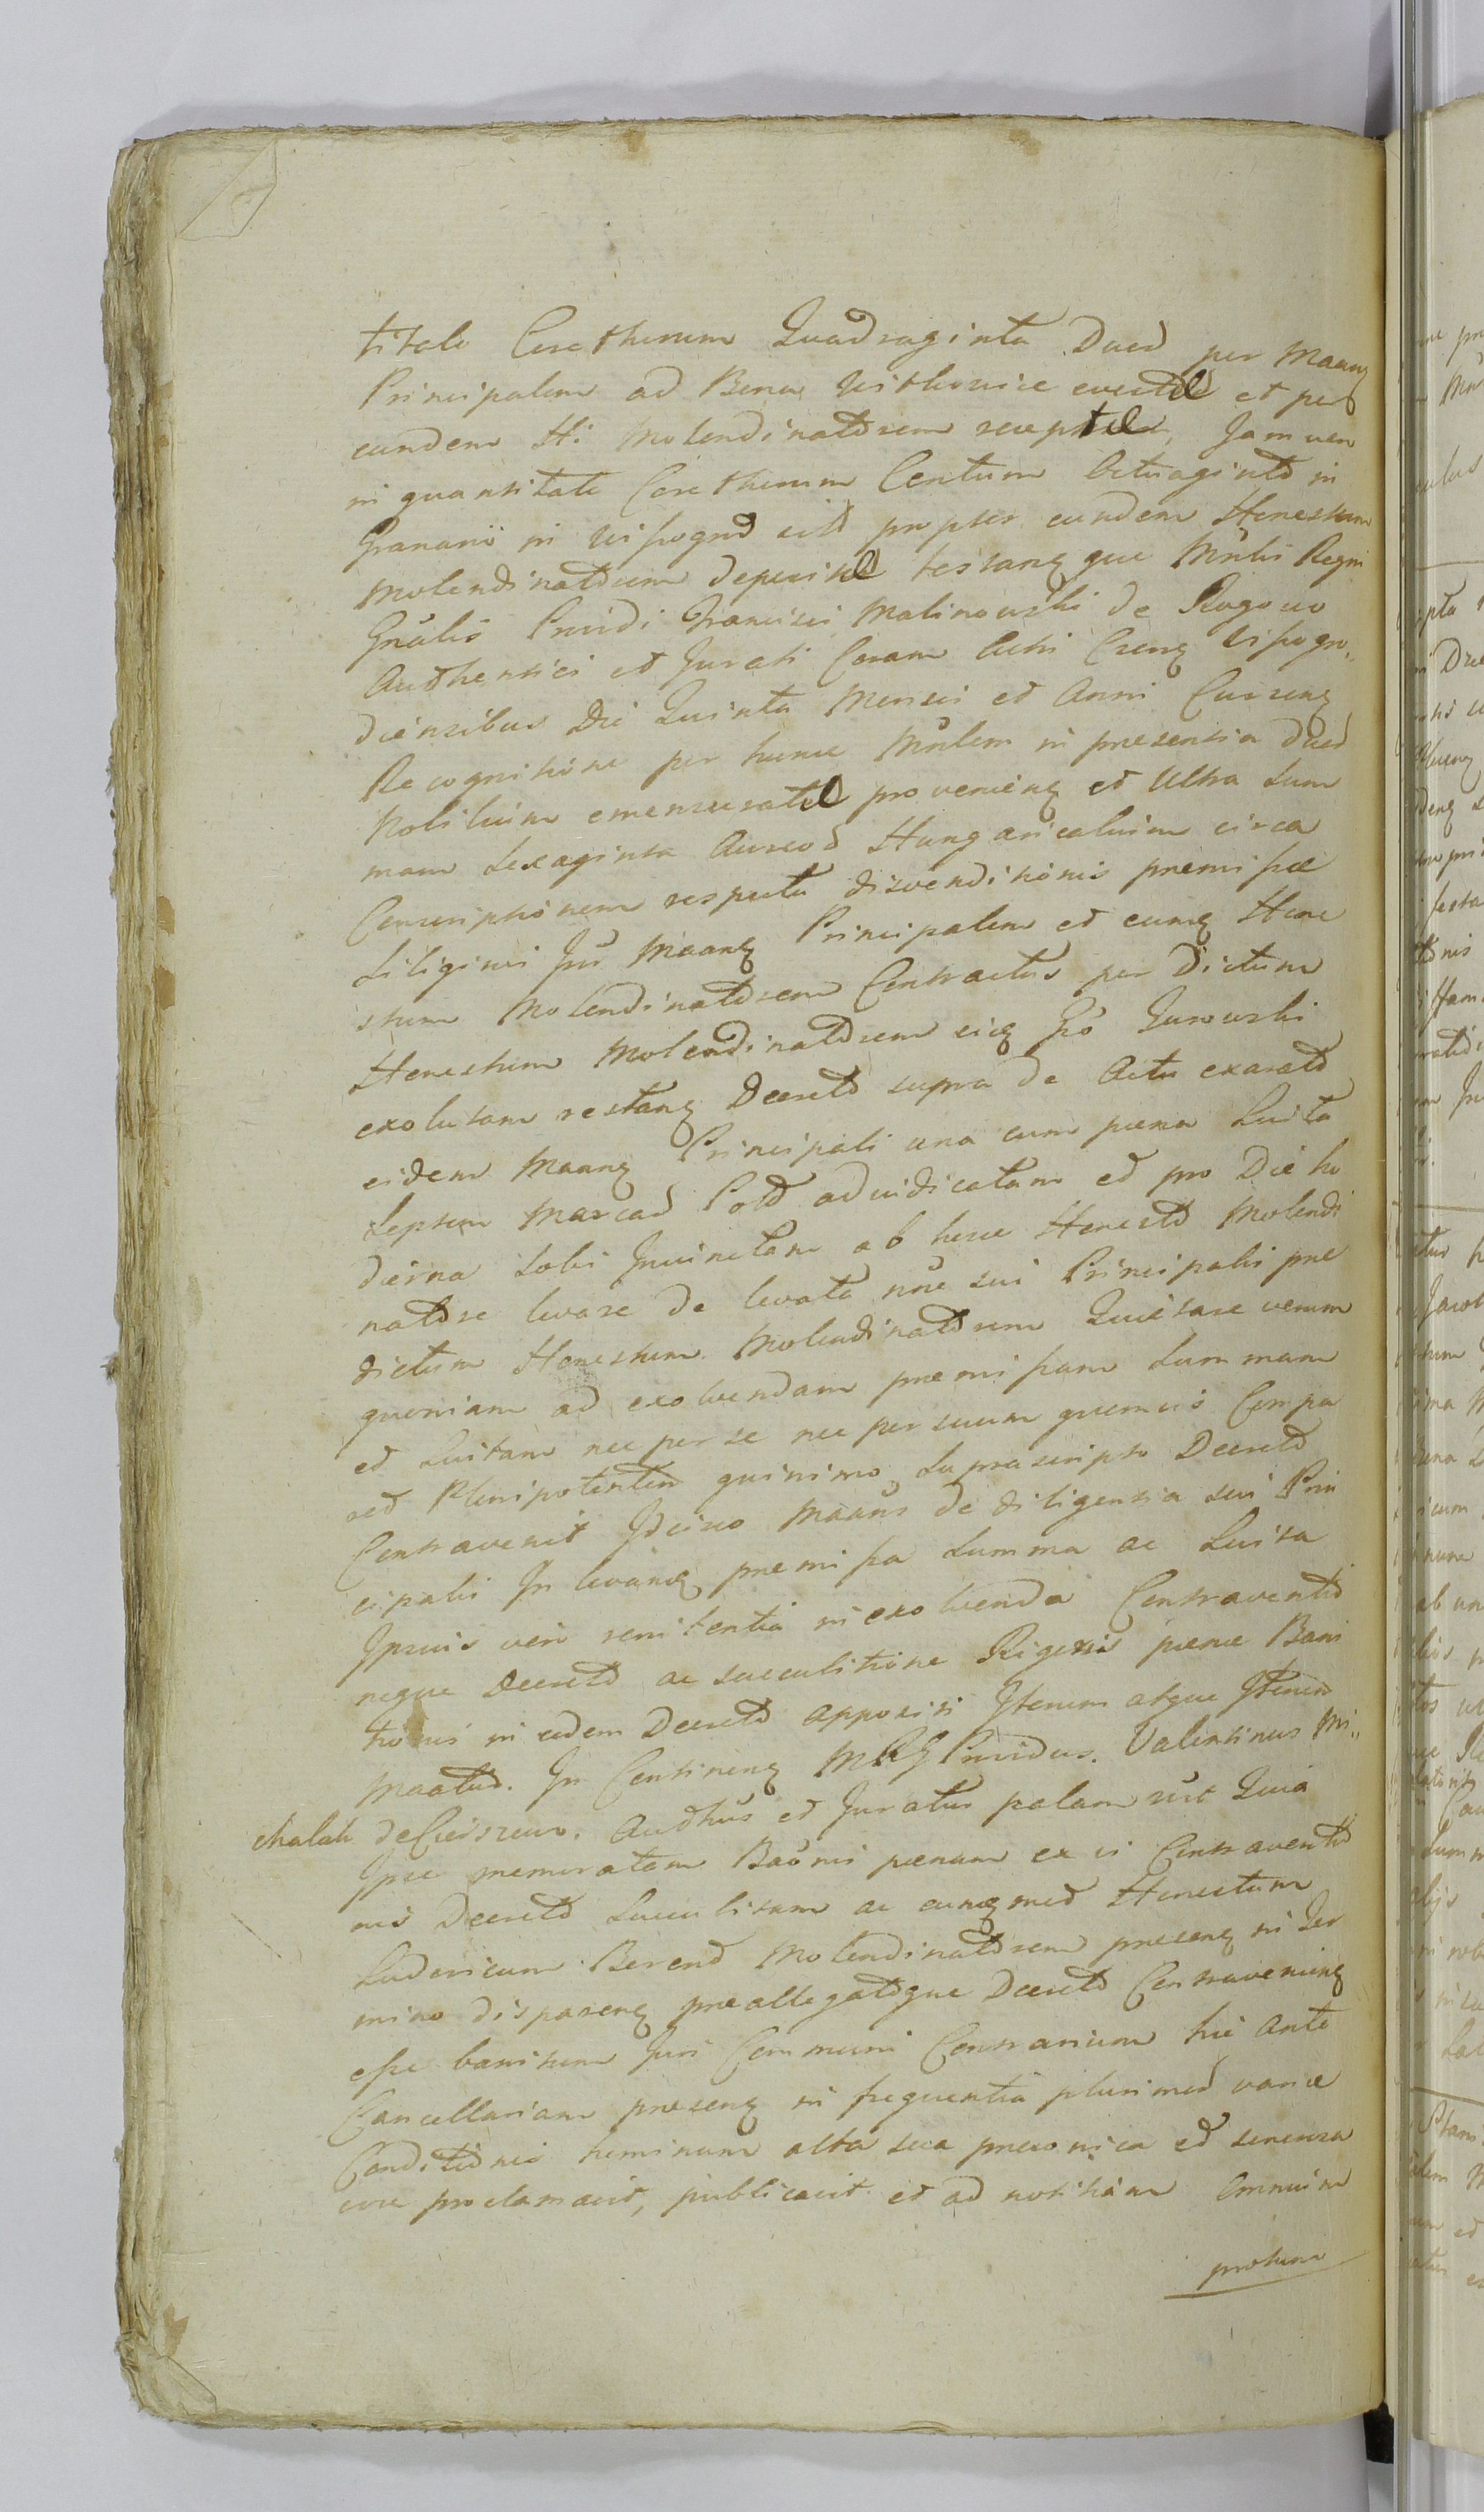 titulo Corethorum Quadraginta Duos per Maang
Principalem ad Bona Witkowice evectos et per
eundem H: Molendinatorem receptos, Jam vero
in quantitate Corethorum Centum Octuaginta in
Granario in Wyssogrod sito propter eundem Honestum
Molendinatorem depositis testang que Mnlis Regni
Gnalis Providi Francisci Malinowski de Rogowo
Authentici et Jurati Coram Actis Cseng Vissogro,,
diensibus Die Quinta Mensis et Anni Curreng
Recognitione per hunc Mnlem in presentia duos
Nobilium emensuratis provenieng et Ultra Sum
mam Sexaginta Aureos Hungaricalium circa
Conscriptionem respectu disvenditionis premissae
Siliginis Inr Maang Principalem et eumq Hone
stum Molendinatorem Contractus per Dictum
Honestum Molendinatorem eiq Gso Jurowski
exolutam restang Decreto supra de Actu exarato
eidem Maang Principali una cum paena Luita
Septem Marcas Polo adiudicatam et pro Die ho
dierna Solvi Iniunctam ab hocce Honesto Molendi
natore levare de levata nne sui Principalis prae
dictum Honestum Molendinatorem Quietare verum
quoniam ad exolvendam premissam Summam
et Luitam nec per se nec per suum quemvis Compa
red Plenipotentem quinimo Suprascripto Decreto
Contravenit Idcirco Maans de diligentia sui Prin
cipalis In levang premissa Summa ac Luita
Ipsius vero renitentia in exolvenda Contraventio
neque Decreto ac succubitione Rigoris paenae Bani
tionis in eodem Decreto appositi Iterum atque Iterum
Maatus. In Contineng MRG Providus. Valentinus Mi,,
chalak de Cieiszewo. Authus et Juratus palam rnt Quia
Ipse memoratam Baonis paenam ex vi Contraventio
nis Decreto Succubitam ac eumqmod Honestum
Ludovicum Berend Molendinatorem preseng in Ter
mino dispareng preallegatoque Decreto Contravenieng
esse banitum Juri Communi Contrarium hic Ante
Cancellariam preseng in frequentia plurimos variae
Conditionis hominum alta sua praeconica et sonorosa
voce proclamavit, publicavit et ad notitiam Omnium
protunc